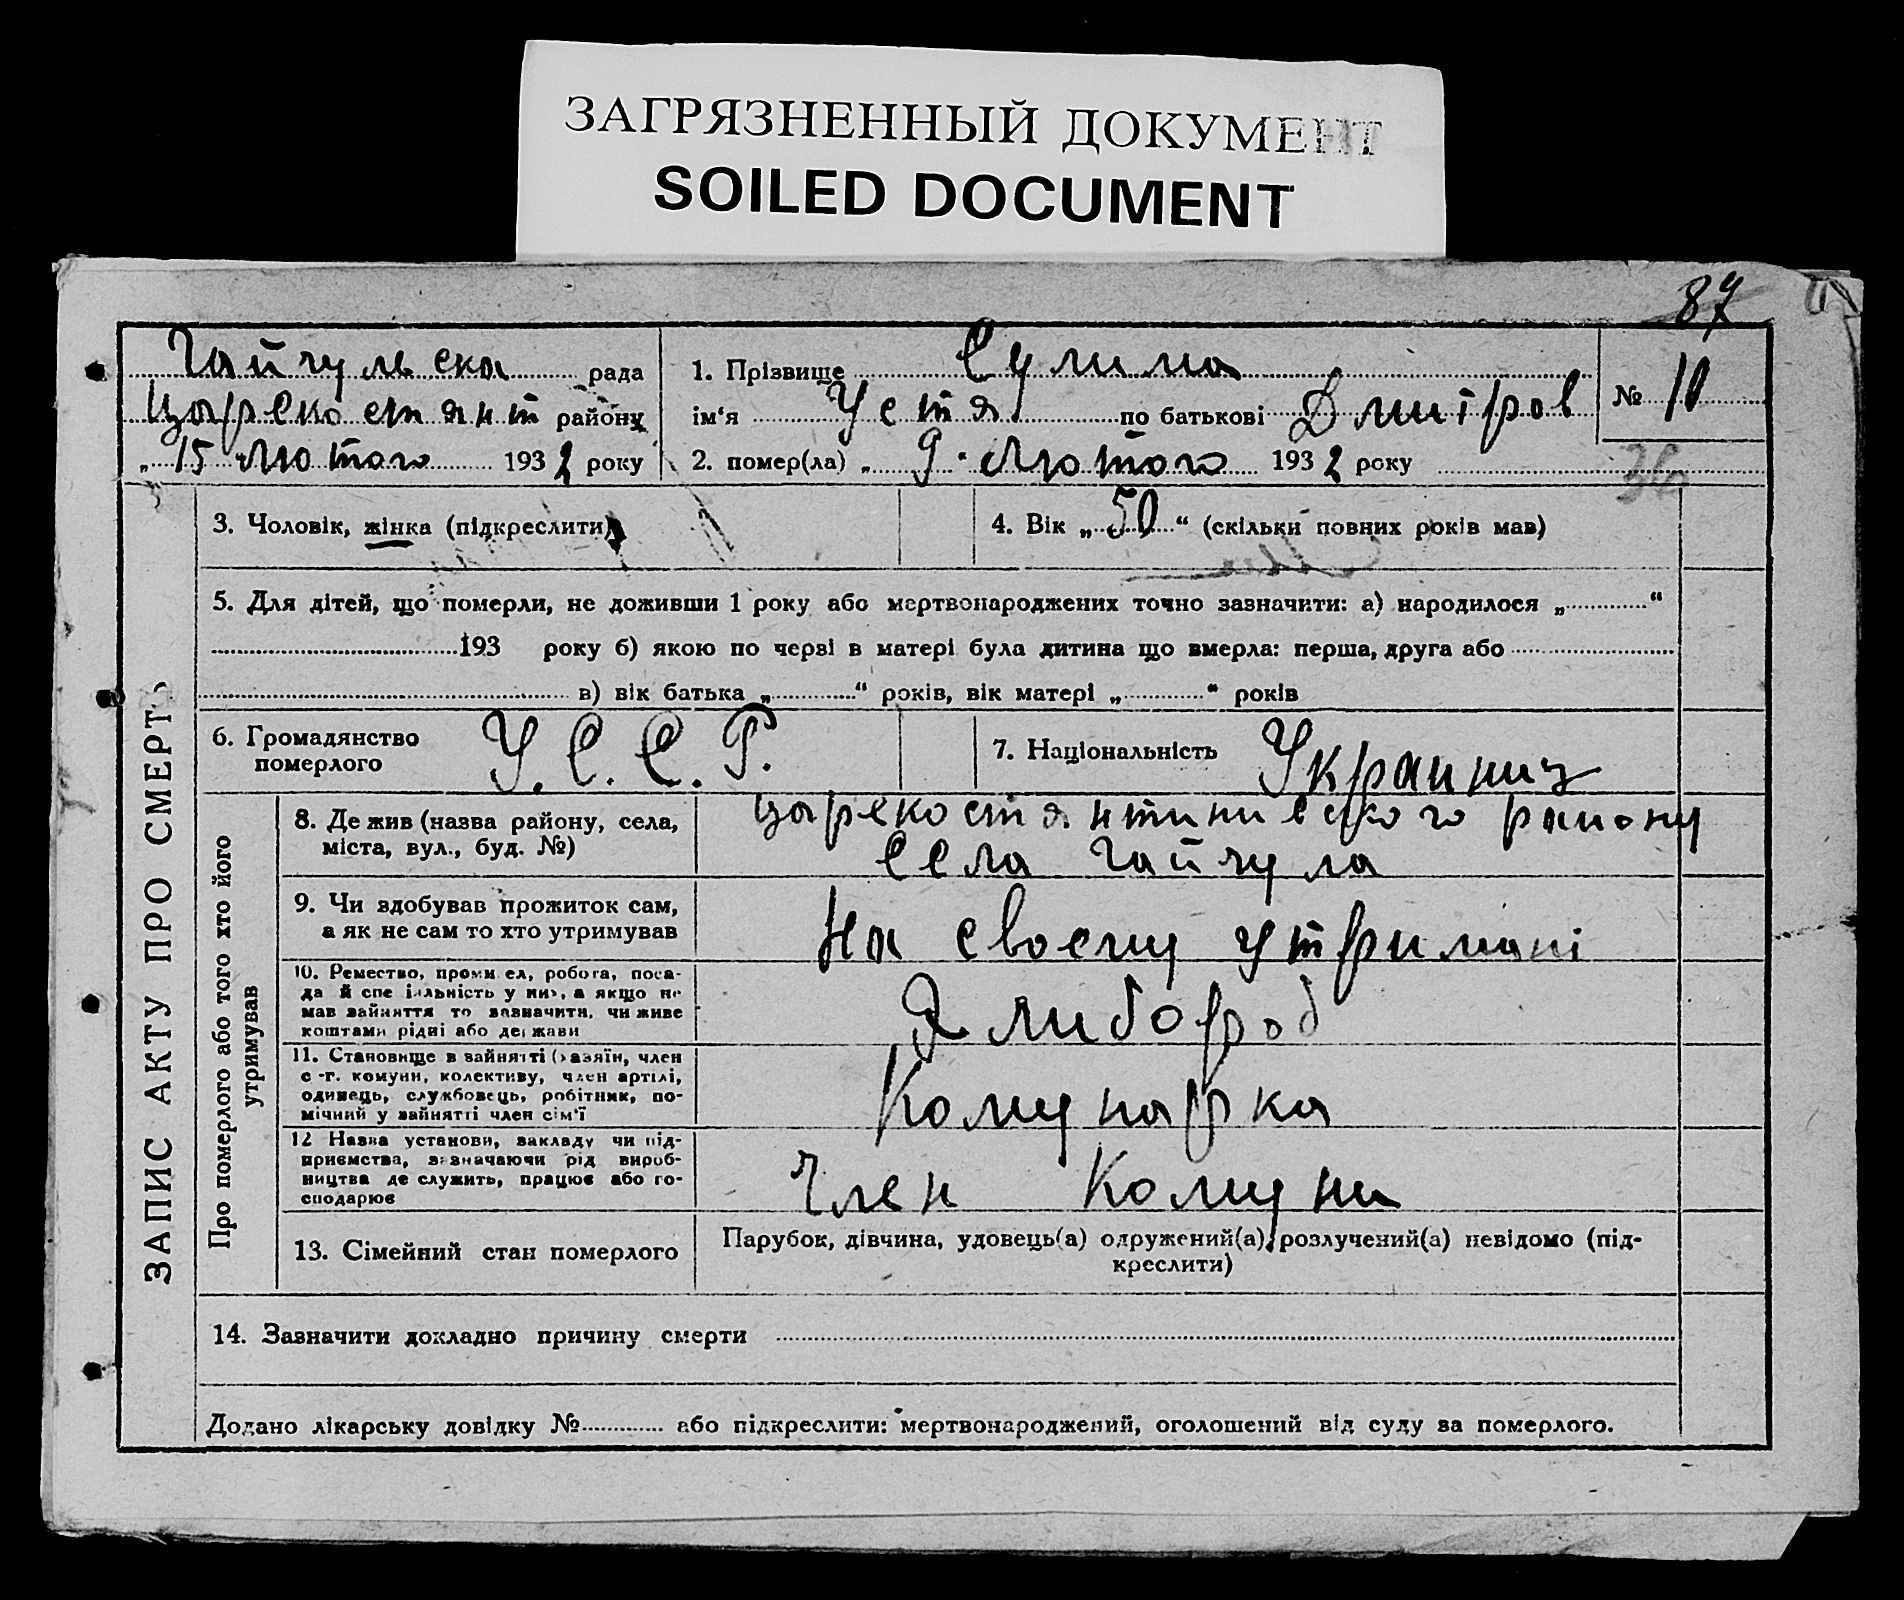 ЗАГРЯЗНЕННЫЙ ДОКУМЕНТ
SOILED DOCUMENT
87
Гайчульска рада
Царекостянт району
„ 15 лютого 1932 року
1. Прізвище Сулима
ім‘я Устя по батькові Дмитров
2. помер(ла) „ 9. лютого 1932 року
№ 10
36
3. Чоловік, жінка (підкреслити)
4. Вік „ 50 “ (скільки повних років мав)
5. Для дітей, що померли, не доживши 1 року або мертвонароджених точно зазначити: а) народилося „ “
193 року б) якою по черзі в матері була дитина що вмерла: перша, друга або
в) вік батька „ “ років, вік матері „ “ років
6. Громадянство
померлого
У. С. С. Р.
7. Національність Украинц
ЗАПИС АКТУ ПРО СМЕРТЬ
Про померлого або того хто його
утримував
8. Де жив (назва району, села,
міста, вул., буд. №)
царекостянтинивского району
села Гайчула
9. Чи здобував прожиток сам,
а як не сам то хто утримував
На своему утримані
10. Ремество, промисел, робота, поса-
да й спеціальність у них, а якщо не
мав зайняття то зазначити, чи живе
коштами рідні або держави
Хлибороб
11. Становище в зайнятті (хазяїн, член
с.-г. комуни, колективу, член артілі,
одинець, службовець, робітник, по-
мічний у зайнятті член сім‘ї
Комунарка
12 Назва установи, закладу чи під-
приємства, зазначаючи рід вироб-
ництва де служить, працює або го-
сподарює
Член Комуни
13. Сімейний стан померлого
Парубок, дівчина, удовець(а) одружений(а), розлучений(а) невідомо (під-
креслити)
14. Зазначити докладно причину смерти
Додано лікарську довідку № або підкреслити: мертвонароджений, оголошений від суду за померлого.